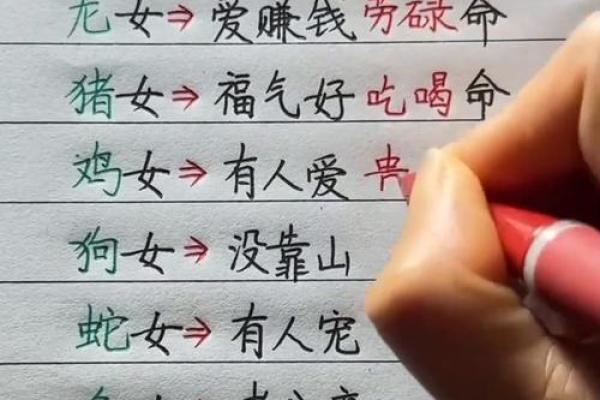 龙女⇒爱赚钱劳碌命
猪女⇒福气好吃喝命
鸡女⇒有人爱
狗女⇒没靠山
蛇女⇒有人宠